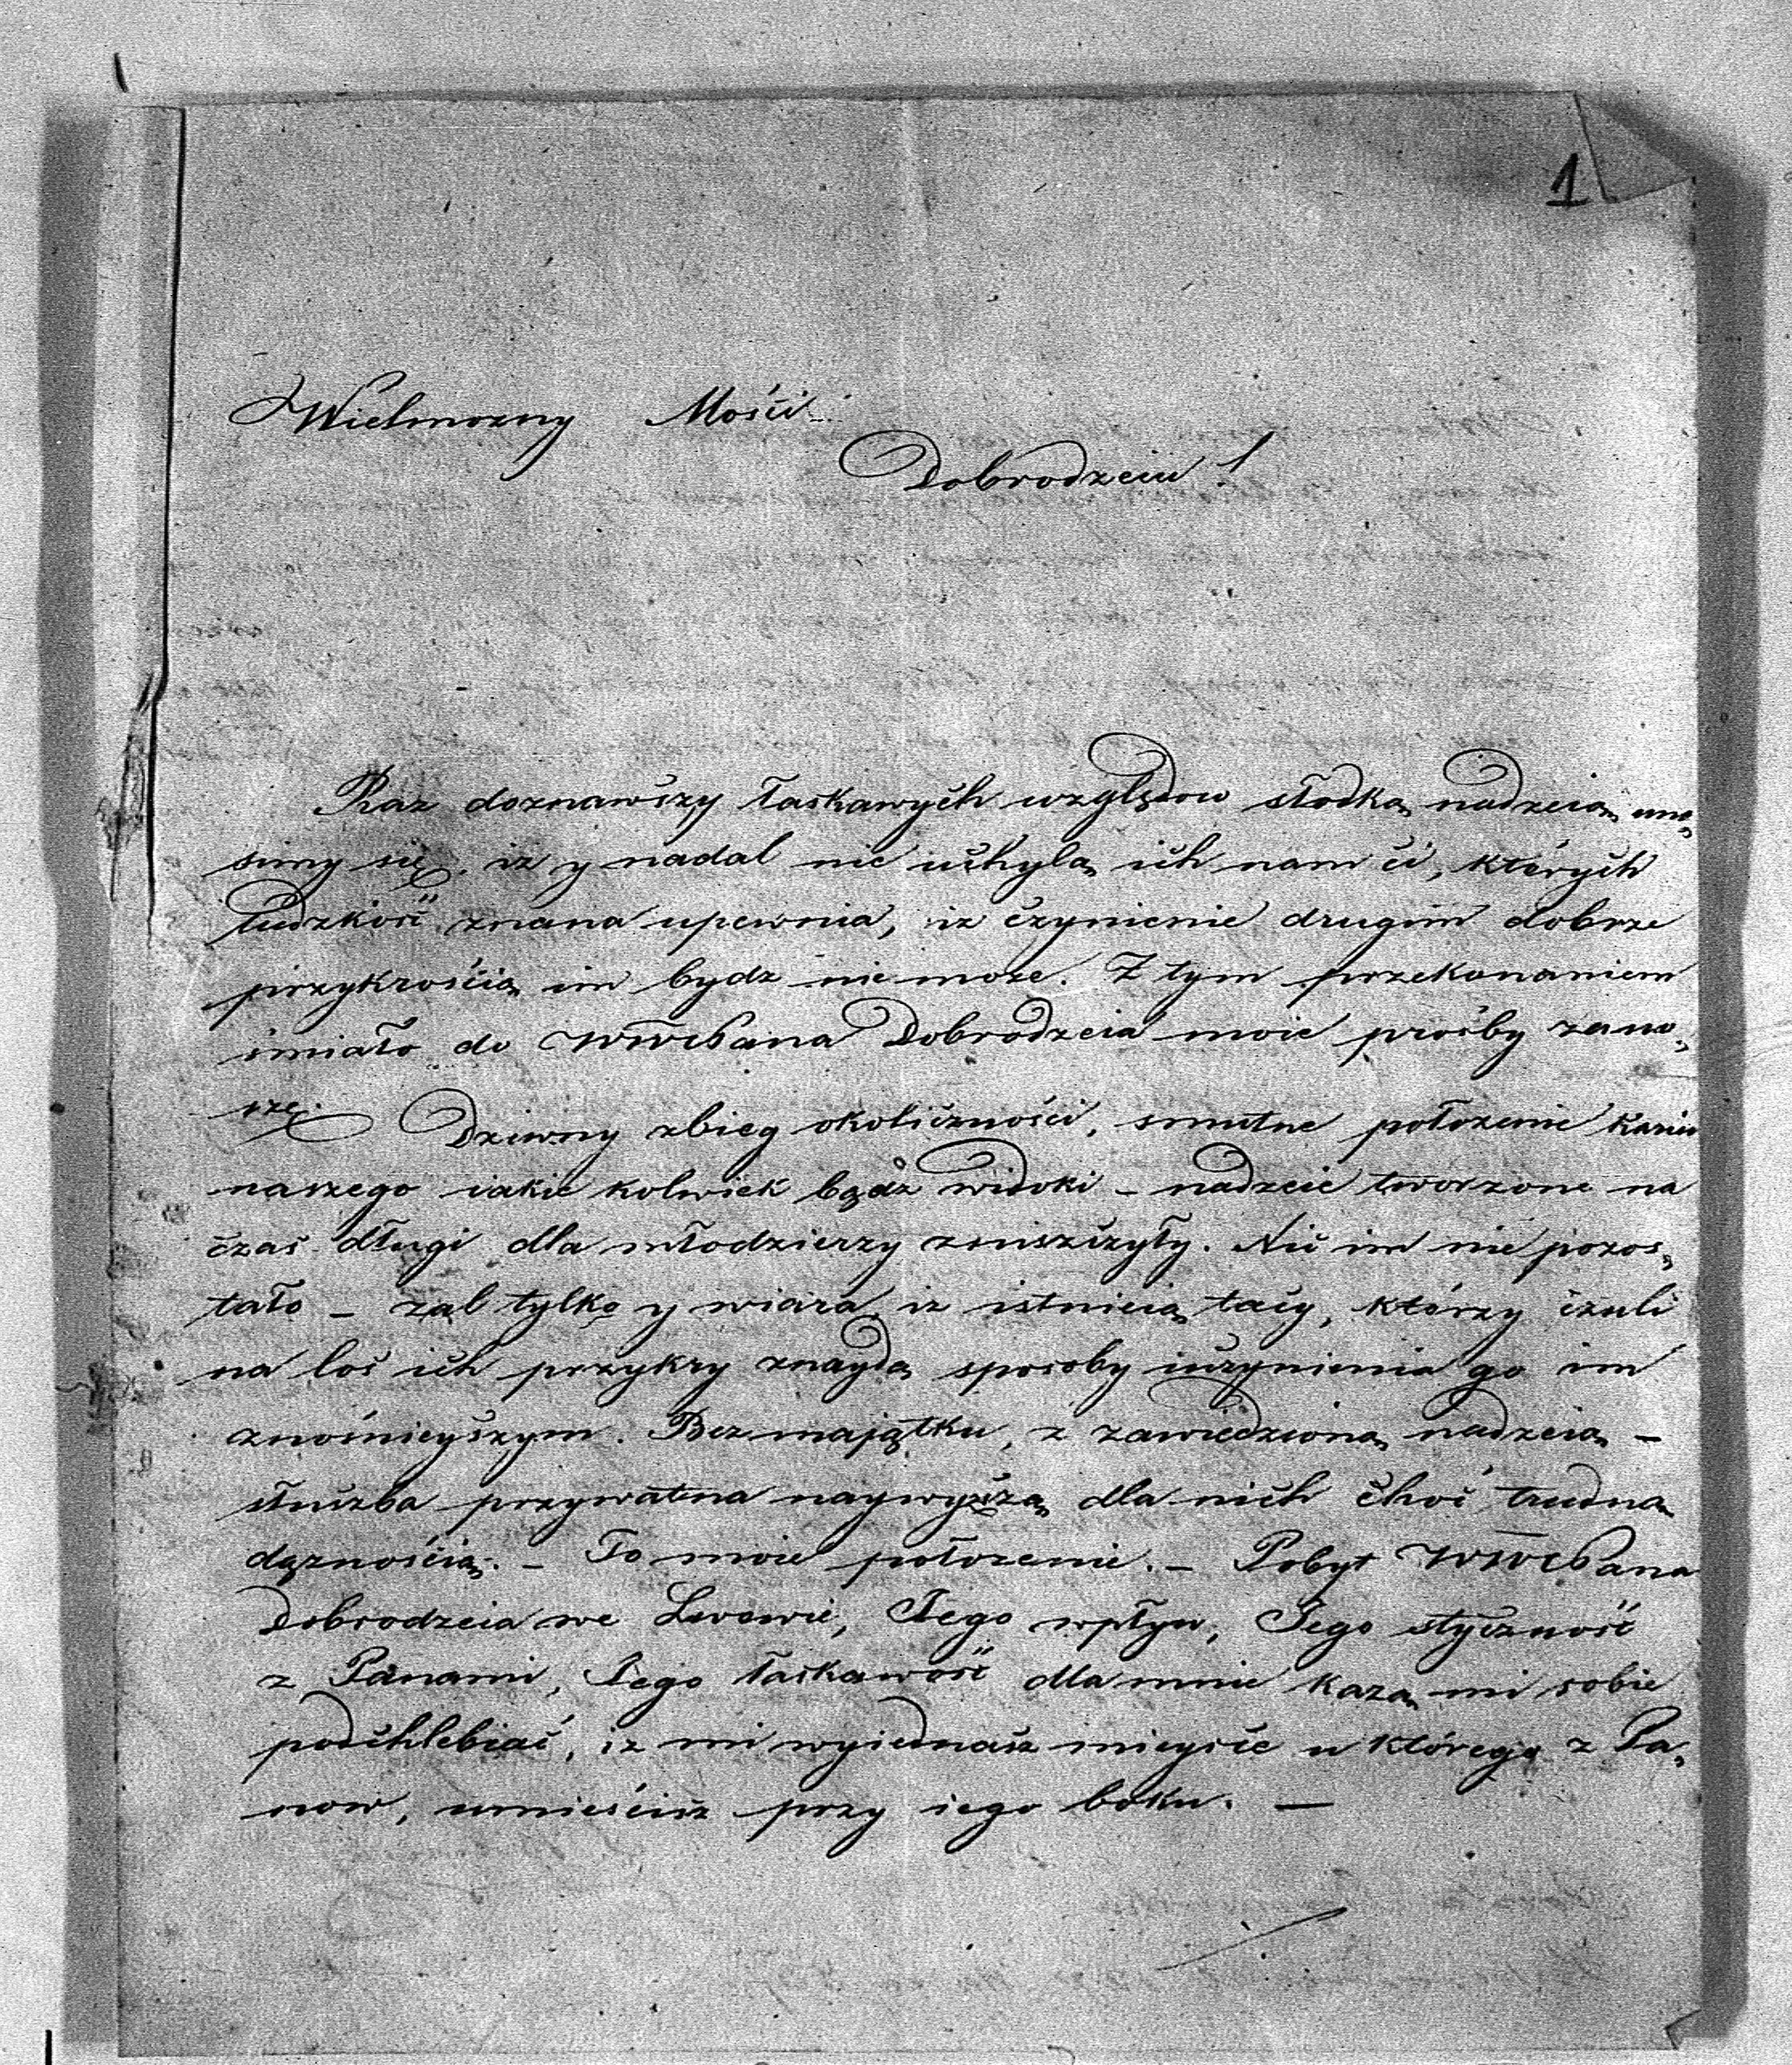 1
Wielmozny Mości
Dobrodzeiu!
Raz doznawszy łaskawych względow słodką nadzeią uno„
simy się, iz y nadal nie uchylą ich nam ci, których
ludzkość znana upewnia, iz czynienie drugim dobrze
przykrością im bydz nie moze. Z tym przekonaniem
smiało do WWcPana Dobrodzeia moie prośby zano„
szę. Dziwny zbieg okoliczności, smutne połozenie
naszego iakie kolwiek bądz widoki – nadzeie tworzone na
czas długi dla młodzierzy zniszczyły. Nic im nie pozos„
tało – zal tylko y wiara, iz istnieią tacy, którzy czuli
na los ich przykry znaydą sposoby uczynienia go im
znośnieyszym. Bez majątku, z zawiedzioną nadzeią –
służba prywatna naywyższą dla nich choć trudną
dążnością. – To moie połozenie. – Pobyt WWcPana
Dobrodzeia we Lwowie, Jego wpływ, Jego styczność
z Panami, Jego łaskawość dla mnie kazą mi sobie
podchlebiać, iz mi wyiednasz mieysce u którego z Pa„
now, umieścisz przy iego boku. —